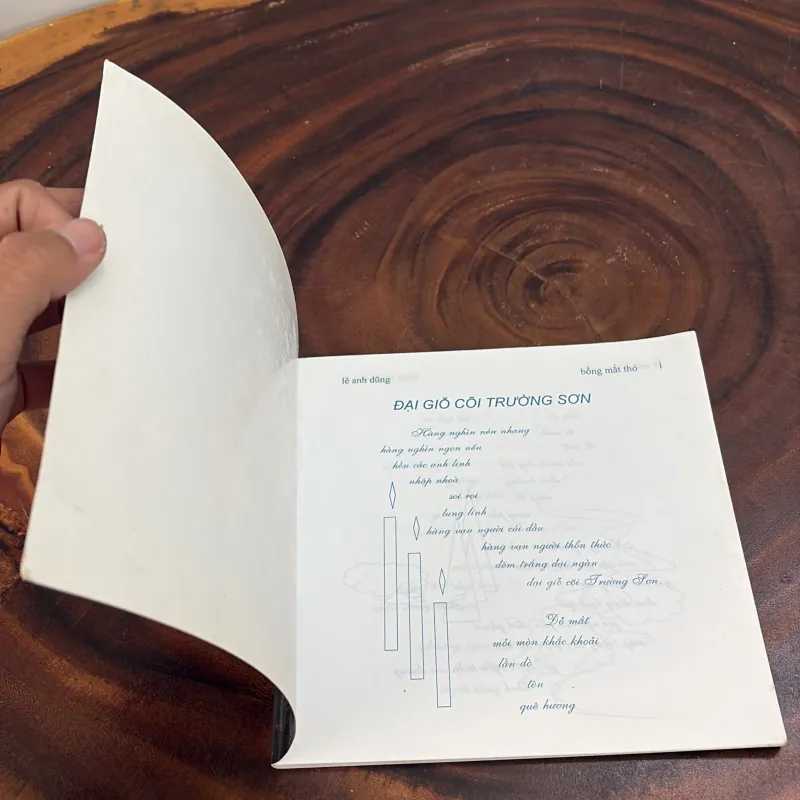 lê anh dũng
bồng mắt thở
ĐẠI GIỖ CÕI TRƯỜNG SƠN
Hàng nghìn nén nhang
hàng nghìn ngọn nến
hồn các anh linh
nhập nhoà
soi rọi
lung linh
hàng vạn người cúi đầu
hàng vạn người thổn thức
đêm trắng đại ngàn
đại giỗ cõi Trường Sơn.
Đỏ mắt
mỏi mòn khắc khoải
lần dò
tên
quê hương